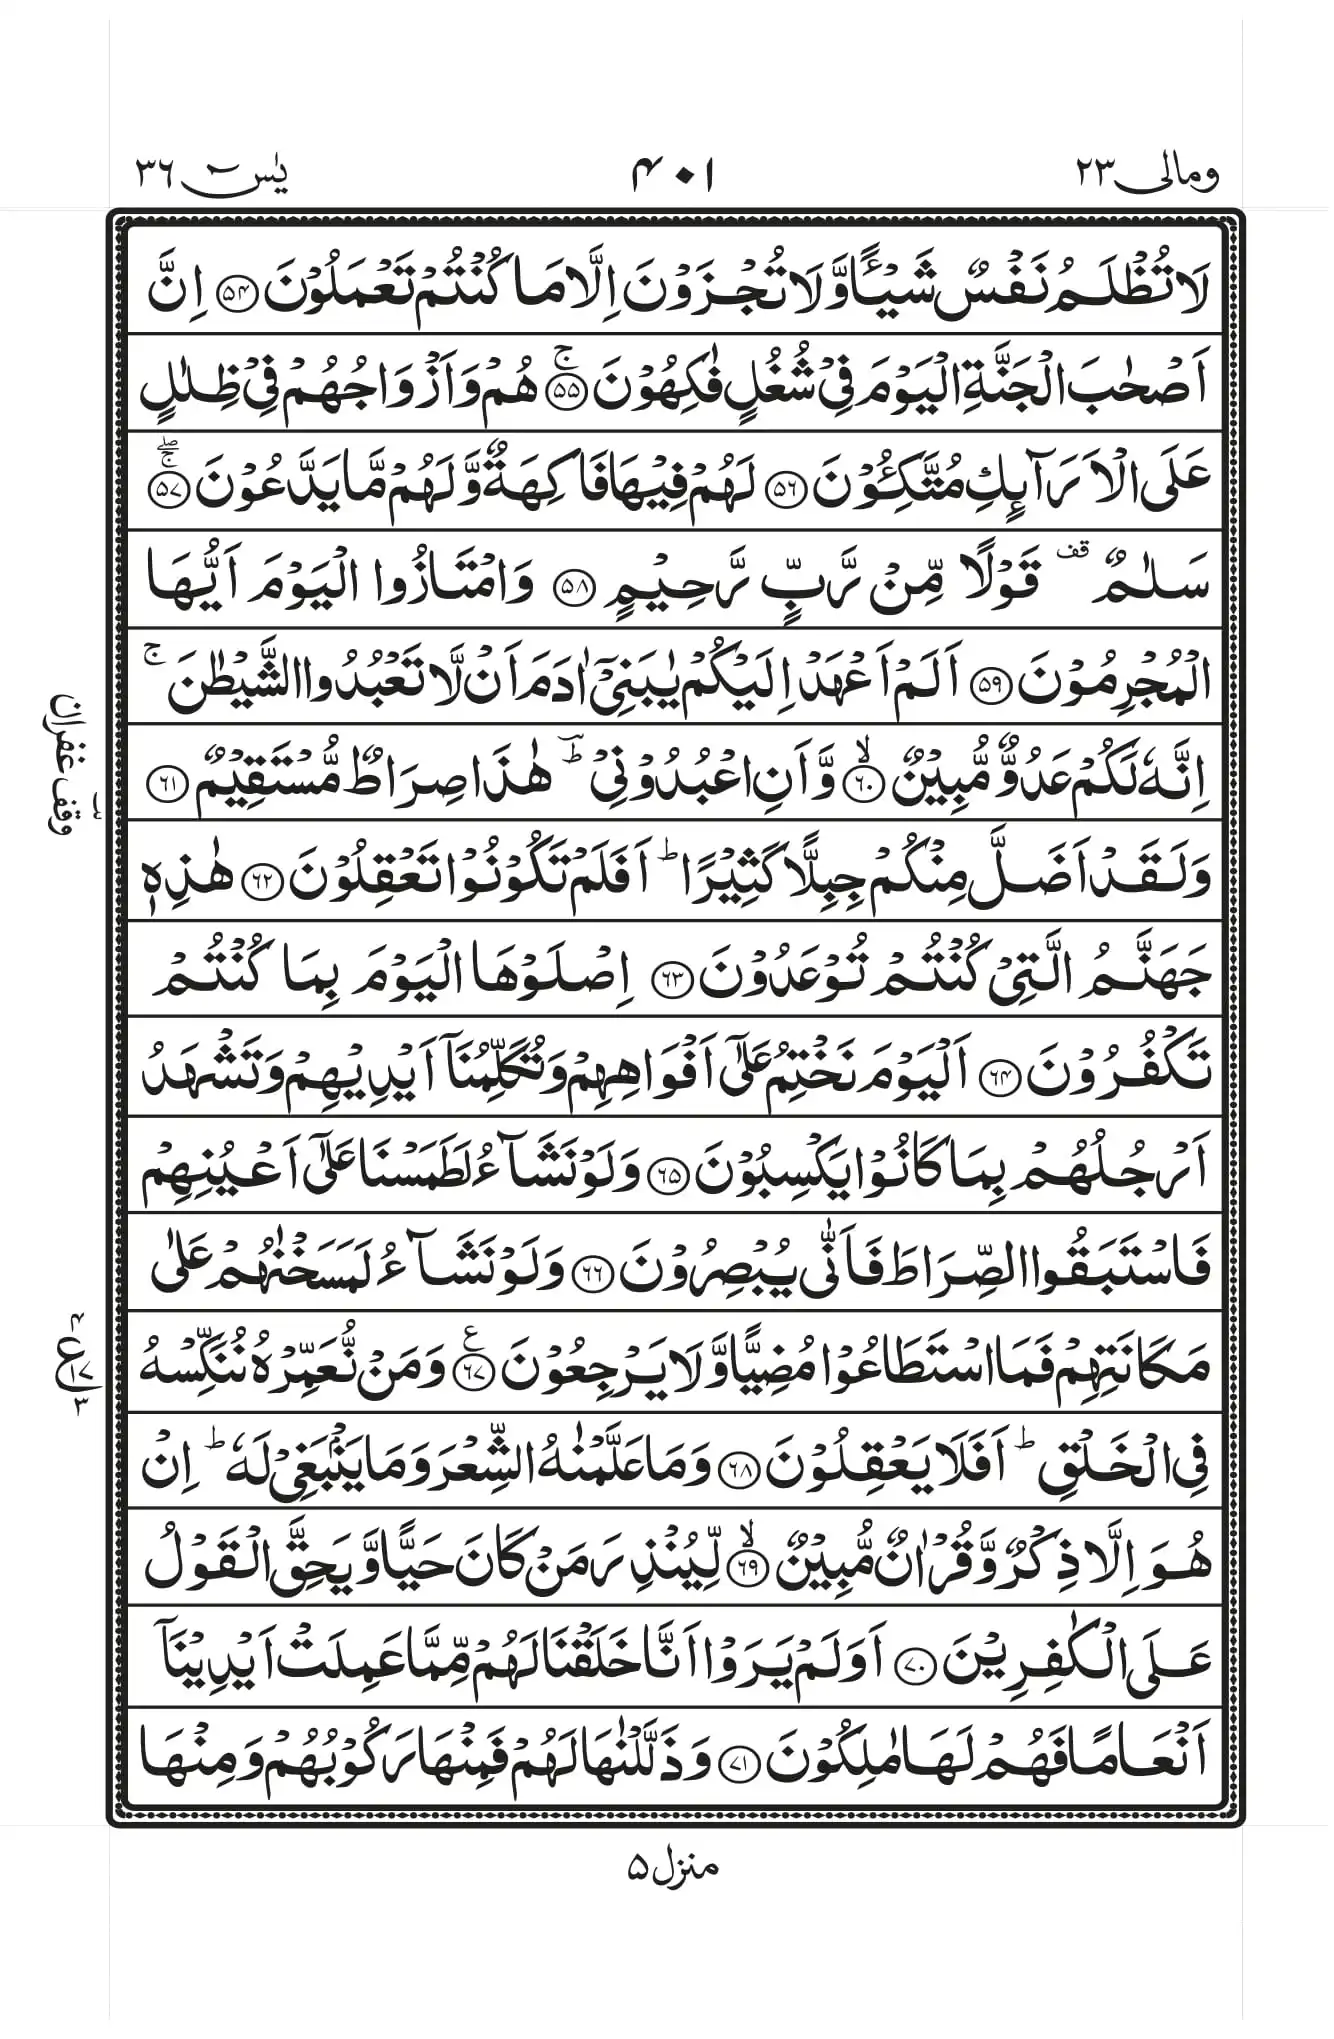 ومالی ٢٣
٤٠١
یٰسٓ ٣٦
لَا تُظْلَمُ نَفْسٌ شَيْـًٔا وَّلَا تُجْزَوْنَ اِلَّا مَا كُنْتُمْ تَعْمَلُوْنَ ﴿۵۴﴾ اِنَّ
اَصْحٰبَ الْجَنَّةِ الْيَوْمَ فِيْ شُغُلٍ فٰكِهُوْنَ ﴿۵۵﴾ۚ هُمْ وَاَزْوَاجُهُمْ فِيْ ظِلٰلٍ
عَلَى الْاَرَآىِٕكِ مُتَّكِـُٔوْنَ ﴿۵۶﴾ لَهُمْ فِيْهَا فَاكِهَةٌ وَّلَهُمْ مَّا يَدَّعُوْنَ ﴿۵۷﴾ۚۖ
سَلٰمٌ قف قَوْلًا مِّنْ رَّبٍّ رَّحِيْمٍ ﴿۵۸﴾ وَامْتَازُوا الْيَوْمَ اَيُّهَا
الْمُجْرِمُوْنَ ﴿۵۹﴾ اَلَمْ اَعْهَدْ اِلَيْكُمْ يٰبَنِيْٓ اٰدَمَ اَنْ لَّا تَعْبُدُوا الشَّيْطٰنَ ۚ
اِنَّهٗ لَكُمْ عَدُوٌّ مُّبِيْنٌ ﴿۶۰﴾ۙ وَّاَنِ اعْبُدُوْنِيْ ؕ هٰذَا صِرَاطٌ مُّسْتَقِيْمٌ ﴿۶۱﴾
وَلَقَدْ اَضَلَّ مِنْكُمْ جِبِلًّا كَثِيْرًا ؕ اَفَلَمْ تَكُوْنُوْا تَعْقِلُوْنَ ﴿۶۲﴾ هٰذِهٖ
جَهَنَّمُ الَّتِيْ كُنْتُمْ تُوْعَدُوْنَ ﴿۶۳﴾ اِصْلَوْهَا الْيَوْمَ بِمَا كُنْتُمْ
تَكْفُرُوْنَ ﴿۶۴﴾ اَلْيَوْمَ نَخْتِمُ عَلٰٓى اَفْوَاهِهِمْ وَتُكَلِّمُنَآ اَيْدِيْهِمْ وَتَشْهَدُ
اَرْجُلُهُمْ بِمَا كَانُوْا يَكْسِبُوْنَ ﴿۶۵﴾ وَلَوْ نَشَآءُ لَطَمَسْنَا عَلٰٓى اَعْيُنِهِمْ
فَاسْتَبَقُوا الصِّرَاطَ فَاَنّٰى يُبْصِرُوْنَ ﴿۶۶﴾ وَلَوْ نَشَآءُ لَمَسَخْنٰهُمْ عَلٰى
مَكَانَتِهِمْ فَمَا اسْتَطَاعُوْا مُضِيًّا وَّلَا يَرْجِعُوْنَ ﴿۶۷﴾ ع وَمَنْ نُّعَمِّرْهُ نُنَكِّسْهُ
فِي الْخَلْقِ ؕ اَفَلَا يَعْقِلُوْنَ ﴿۶۸﴾ وَمَا عَلَّمْنٰهُ الشِّعْرَ وَمَا يَنْۢبَغِيْ لَهٗ ؕ اِنْ
هُوَ اِلَّا ذِكْرٌ وَّقُرْاٰنٌ مُّبِيْنٌ ﴿۶۹﴾ۙ لِّيُنْذِرَ مَنْ كَانَ حَيًّا وَّيَحِقَّ الْقَوْلُ
عَلَى الْكٰفِرِيْنَ ﴿۷۰﴾ اَوَلَمْ يَرَوْا اَنَّا خَلَقْنَا لَهُمْ مِّمَّا عَمِلَتْ اَيْدِيْنَآ
اَنْعَامًا فَهُمْ لَهَا مٰلِكُوْنَ ﴿۷۱﴾ وَذَلَّلْنٰهَا لَهُمْ فَمِنْهَا رَكُوْبُهُمْ وَمِنْهَا
وقف غفران
ع
١٧
٣
منزل ۵